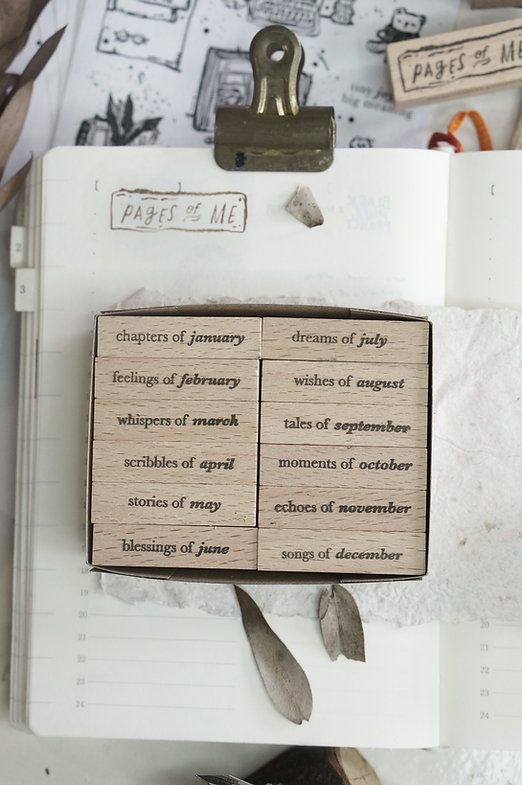 PAGES of ME
big meaning
PAGES of ME
2
3
chapters of january
feelings of february
whispers of march
scribbles of april
stories of may
blessings of june
dreams of july
wishes of august
tales of september
moments of october
echoes of november
songs of december
19
20
21
22
23
24
20
21
22
23
24